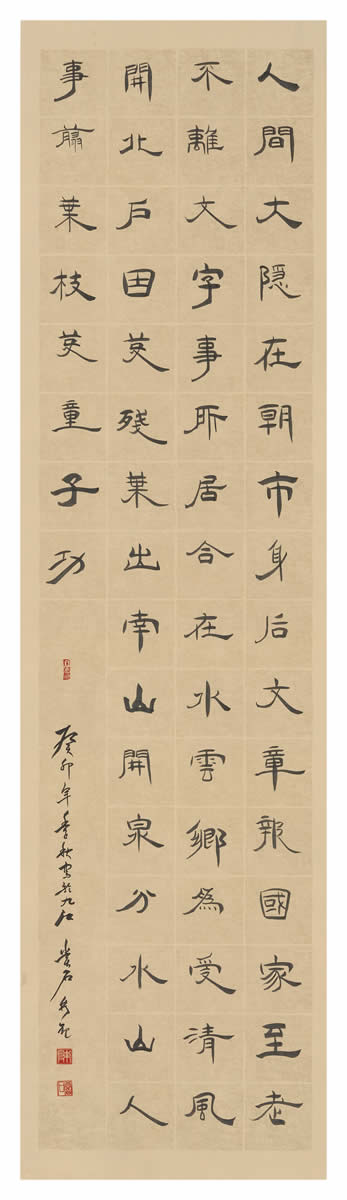 人間大隱在朝市身后文章報國家至老
不離文字事所居合在水雲鄉為受清風
開北戶因芟殘葉出南山開泉分水山人
事翦葉枝芟童子功
癸卯年季秋於九江